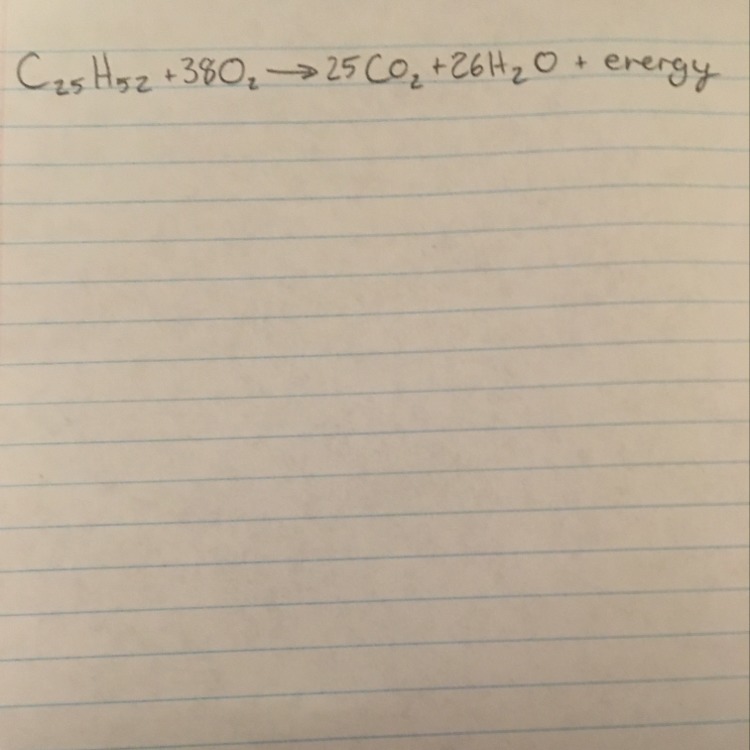 C₂₅H₅₂ + 38O₂ → 25CO₂ + 26H₂O + energy